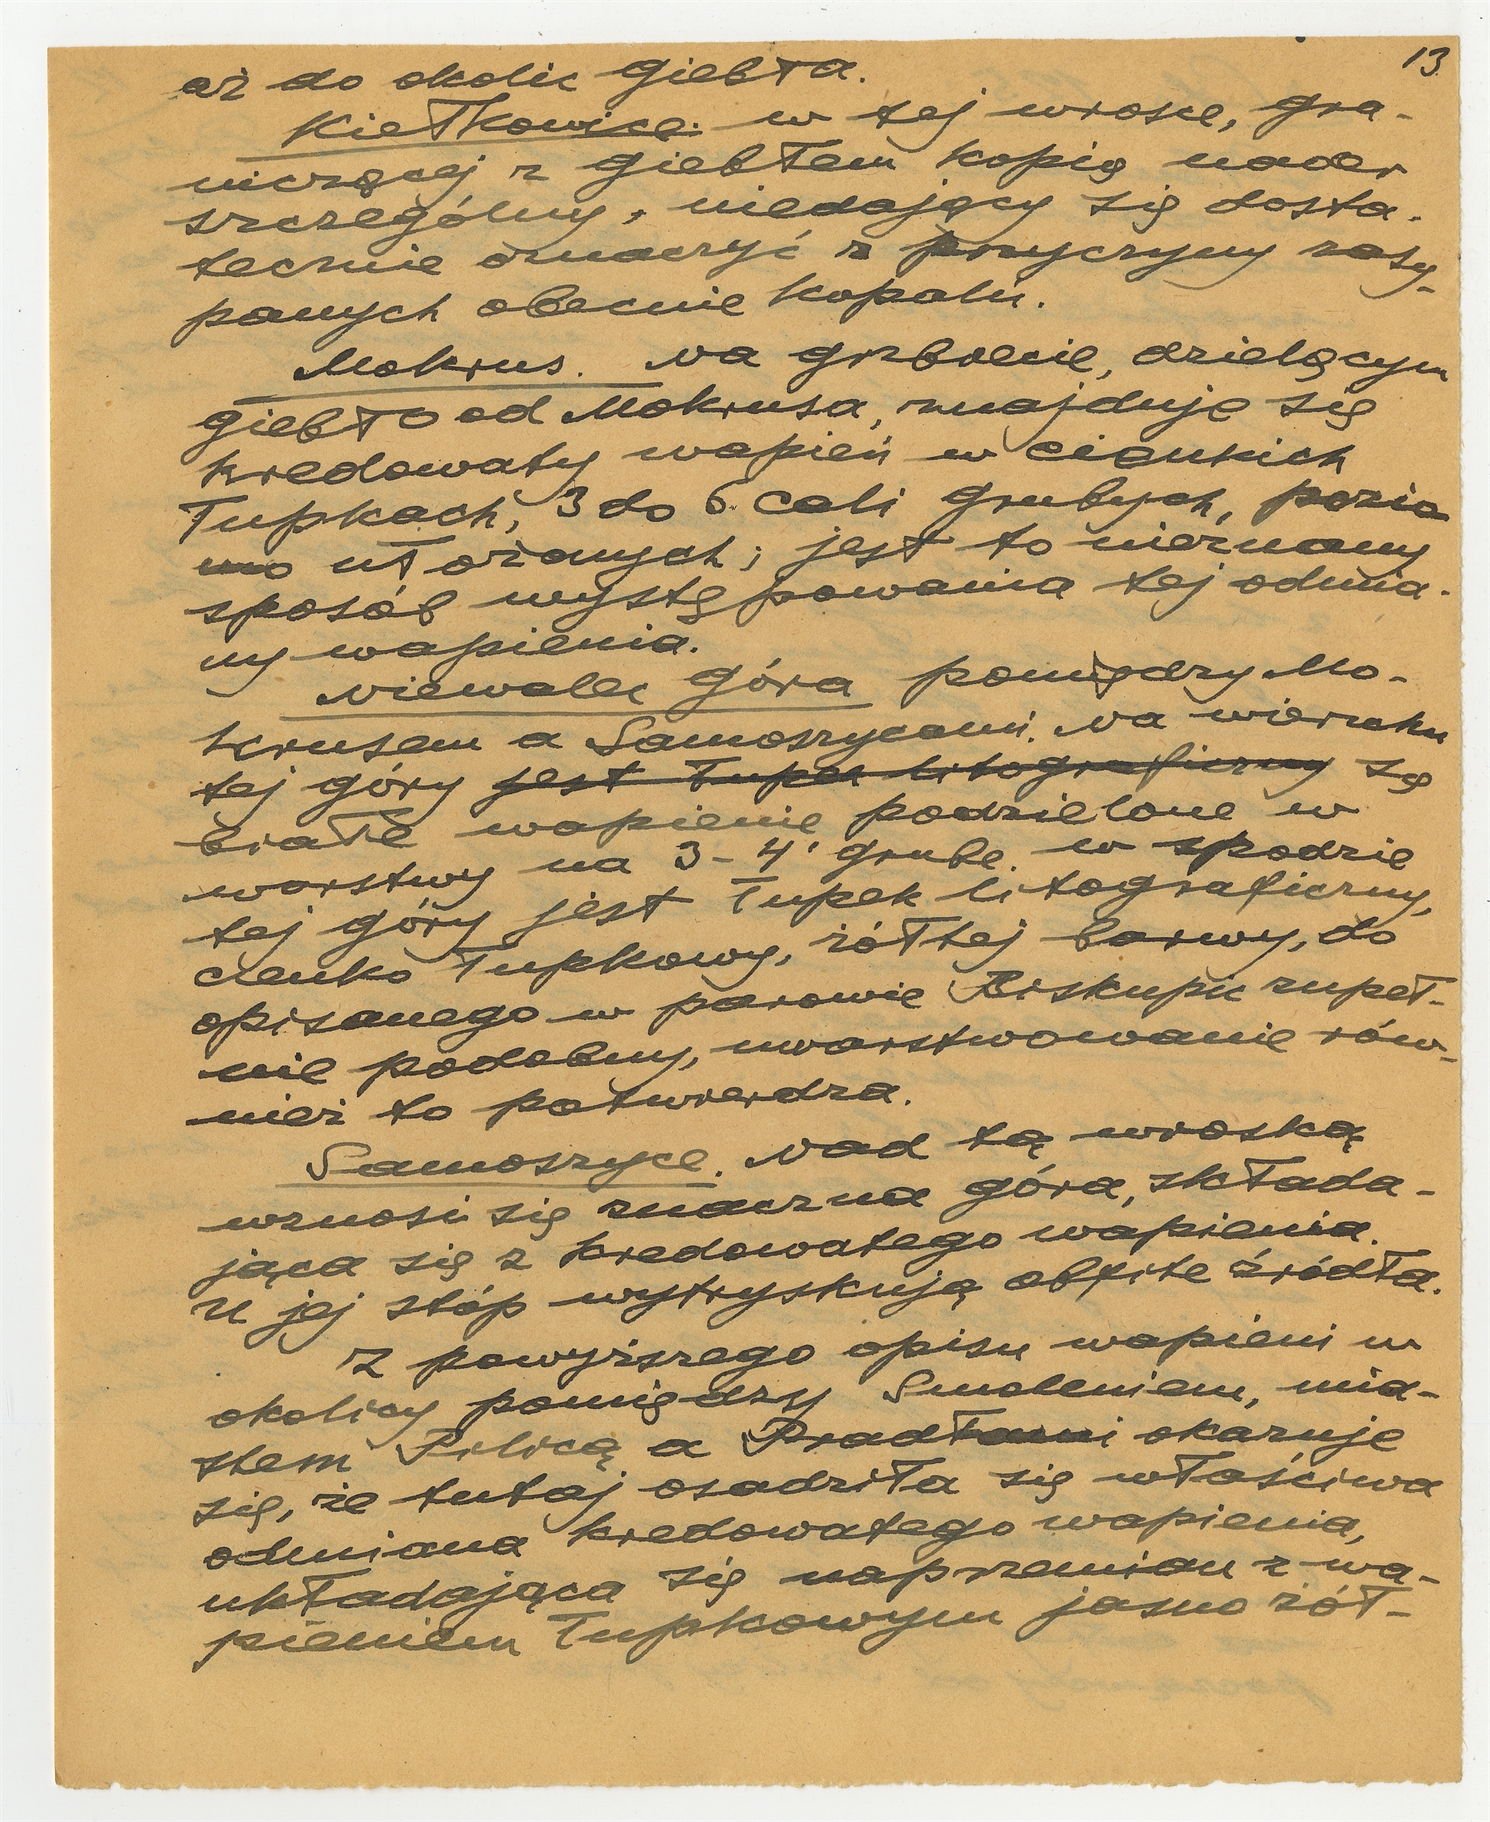 13.
aż do okolic Giebła.
Kiełkowice: w tej wiosce, gra-
niczącej z Giebłem kopią nader
szczególny, niedający się dosta-
tecznie oznaczyć z przyczyny zasy-
panych obecnie kopalń.
Mokrus. Na grzbiecie, dzielącym
Giebło od Mokrusa, znajduje się
kredowaty wapień w cienkich
łupkach, 3 do 6 cali grubych, pozio
mo ułożonych; jest to nieznany
sposób występowania tej odmia-
ny wapienia.
Niewalec góra pomiędzy Mo-
krusem a Samoszycami. Na wierzchu
tej góry jest łupek litograficzny są
białe wapienie podzielone w
warstwy na 3-4' grube. W spodzie
tej góry jest łupek litograficzny,
cienko łupkowy, żółtej barwy, do
opisanego w parowie Biskupic zupeł-
nie podobny, uwarstwowanie rów-
nież to potwierdza.
Samoszyce. Nad tą wioską
wznosi się znaczna góra, składa-
jąca się z kredowatego wapienia.
U jej stóp wytryskują obfite źródła.
Z powyższego opisu wapieni w
okolicy pomiędzy Smoleniem, mia-
stem Pilicą a Pradłami okazuje
się, że tutaj osadziła się właściwa
odmiana kredowatego wapienia,
układająca się naprzemian z wa-
pieniem łupkowym jasno żół-